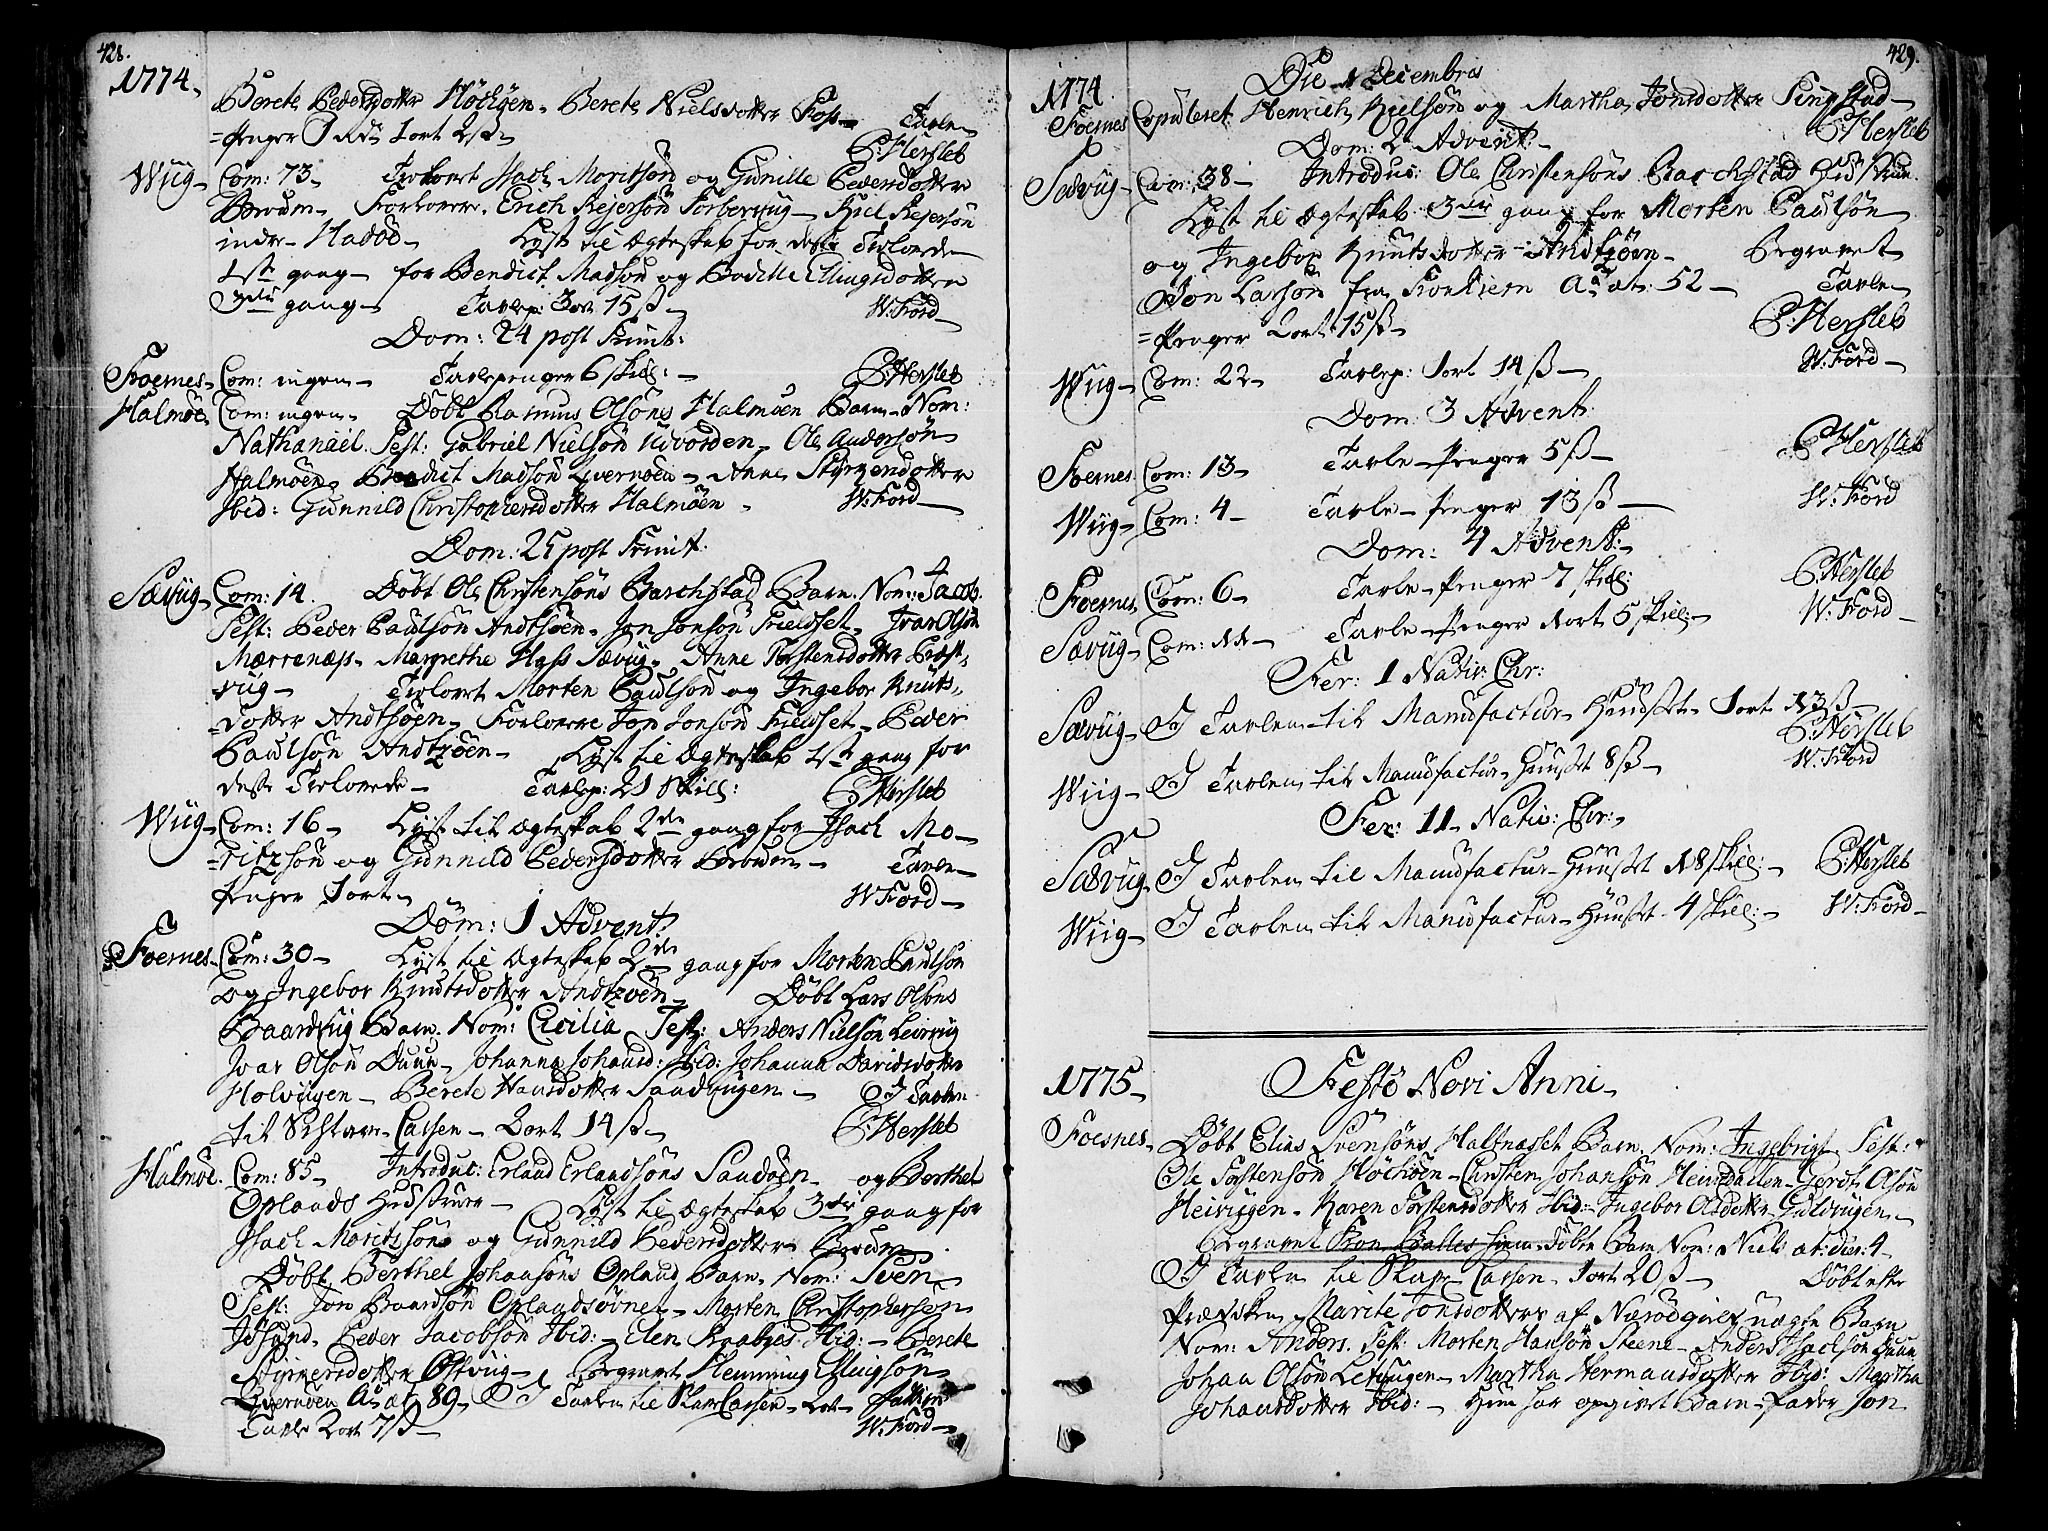 428.
1774.
Berete Pedersdotter Höckøen. Berete Nielsdotter Fos. Tavle-
=Penger 1 ort 2ß
P: Hersleb
Wiig Com: 73 Trolovet Isach Moritsøn og Gunille Pedersdotter
Broum Forlovere. Erich Rejersøn Torbervüg Kiel Rejersøn
indre Hadöd Lyst til Ægteskab for dette Trolovede
1ste gang for Bendict Madsøn og Bodille Ellingsdotter
3die gang Tavlep: 3 ort 15ß W: Ford
Dom: 24 post Trinit:
Foernes Com: ingen Tavlepenger 6 skill: P: Hersleb
Halmøe Com: ingen Döbt Rasmus Olsöns Halmöen Barn Nom:
Nathanäel. Test: Gabriel Nielsön Udvorden Ole Andersön
Halmöen Bendict Madsön Qvernöen Anne Styrkersdotter
Ibid: Gunnild Christophersdotter Halmöen W: Ford
Dom: 25 post Trinit:
Sævüg Com: 14. Döbt Ole Christensöns Barchstad Barn. Nom: Jacob.
Test: Peder Paulsön Andtsöen. Jon Jonsön Fieldset. Ivar Olsön
Mærranæs Margrethe Hass Sævüg Anne Torstensdotter Præst-
vüg Trolovet Morten Paulsön og Ingebor Knuts-
=dotter Andtsöen Forlovere Jon Jonsön Fieldset Peder
Paulsön Andtzöen Lyst til Ægteskab 1ste gang for
dette Trolovede Tavlep: 21 Skill: P: Hersleb
Wiig Com: 16 Lyst til Ægteskab 2den gang for Isach Mo-
=ritzsön og Gunnild Pedersdotter Broum Tavle-
Penger 1 ort W: Ford
Dom: 1 Advent:
Foernes Com: 30 Lyst til Ægteskab 2den gang for Morten Paulsön
og Ingebor Knutsdotter Andtzöen Döbt Lars Olsöns
Baardvüg Barn. Nom: Cicilia Test: Anders Nielsön Leirvüg
Ivar Olsön Duun Johanna Johansd: Ibid: Johanna Davidsdotter
Holvügen Berete Hansdotter Sandvügen I Tavlen
til Cassen 2 ort 14ß P: Hersleb
Halmöe. Com: 85 Introduc: Erland Erlandsöns Sandöen og Berthel
Oplands Hustruer Lyst til Ægteskab 3die gang for
Isach Moritzsön og Gunnild Pedersdotter Broum
Döbt Berthel Johansöns Opland Barn. Nom: Sven
Test: Jon Baardsön Oplandsövne Morten Christophersön
Peder Jacobsön Ibid: Elen Ibid: Berete
Styrkersdotter Ostvüg Begravet Henning Ellingsön
Qvernöen Ao æt 89. I Tavlen til Cassen
Tavle 2 ort 7ß W: Ford
429.
1774. Die 1 Decembris
Foernes Copuleret Henrich Nielsön og Martha Jonsdotter Singstad
P: Hersleb
Dom: 2 Advent:
Sævüg Com: 38 Introduc: Ole Christensöns Barchstad Hustrue.
Lyst til Ægteskab 3die gang for Morten Paulsön
og Ingebor Knutsdotter Andtzöen Begravet
Jon Larsön fra Ao æt: 52 Tavle-
=Penger 2 ort 15ß P: Hersleb
Wiig Com: 22 Tavlep: 1 ort 14ß W: Ford
Dom: 3 Advent:
Foernes Com: 13 Tavle-Penger 5ß P: Hersleb
Wiig Com: 4 Tavle-Penger 13ß W: Ford
Dom: 4 Advent:
Foernes Com: 6 Tavle-Penger 7 skill: P: Hersleb
Sævüg Com: 11 Tavle-Penger 1 ort 5 skill: W: Ford
Fer: 1 Nativ: Chr:
Sævüg I Tavlen til Manufactur-Huuset 1 ort 13ß P: Hersleb
Wiig I Tavlen til Manufactur-Huuset 8ß W: Ford
Fer: 11 Nativ: Chr:
Sævüg I Tavlen til Manufactur-Huuset 18 skill: P: Hersleb
Wiig I Tavlen til Manufactur-Huuset 4 skill: W: Ford
1775 Festo Novi Anni
Foesnes Döbt Elias Svensöns Halfnæsset Barn Nom: Ingebrigt Test:
Ole Torstensön Höckøen Christen Johansön Heimdallen Gerdt Olsön
Heivügen Karen Torstensdotter Ibid: Ingebor Olsdotter Gulvügen
Begravet hiem-döbte Barn Nom: Niels æt: dier: 4
I Tavlen til Cassen 1 ort 20ß Döbt efter
Prædiken Marite Jonsdotters af uægte Barn
Nom: Anders. Test: Morten Hansön Steene Anders Isachsön Duun
Johan Olsön Leirvügen Martha Hermansdotter Ibid: Martha
Johansdotter Ibid: Hun har opgivet Barn-Fader Jon